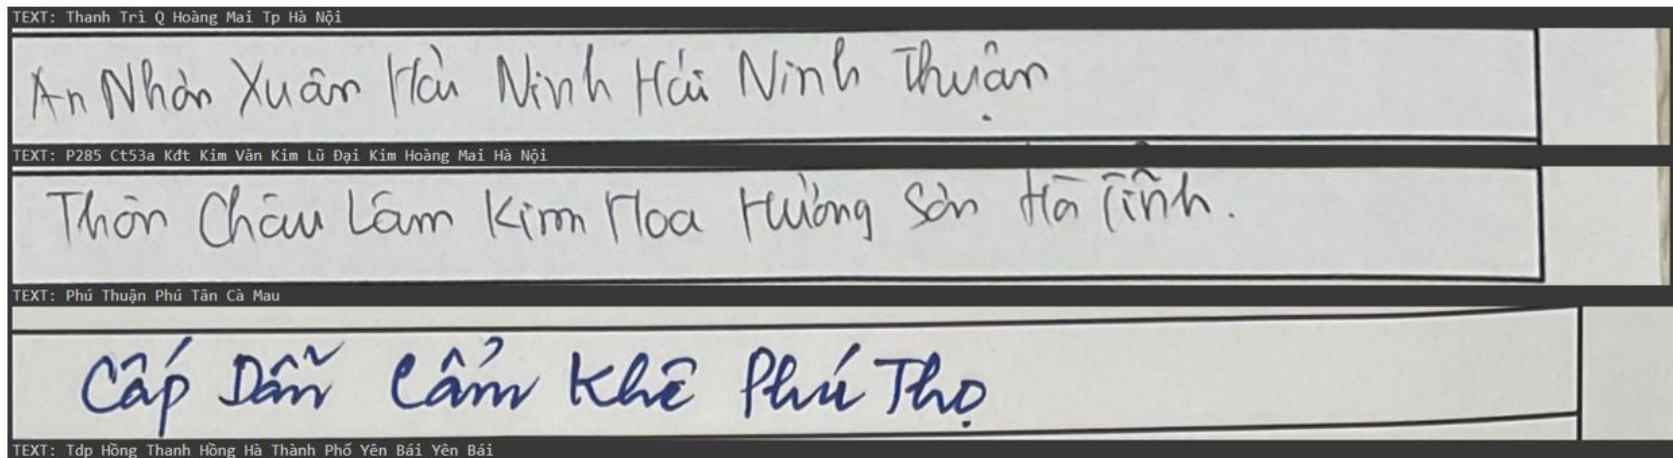 TEXT: Thanh Trì Q Hoàng Mai Tp Hà Nội
An Nhơn Xuân Hải Ninh Hải Ninh Thuận
TEXT: P285 Ct53a Kđt Kim Văn Kim Lũ Đại Kim Hoàng Mai Hà Nội
Thôn Châu Lâm Kim Hoa Hương Sơn Hà Tĩnh.
TEXT: Phú Thuận Phú Tân Cà Mau
Cấp Dẫn Cẩm Khê Phú Thọ
TEXT: Tdp Hồng Thanh Hồng Hà Thành Phố Yên Bái Yên Bái